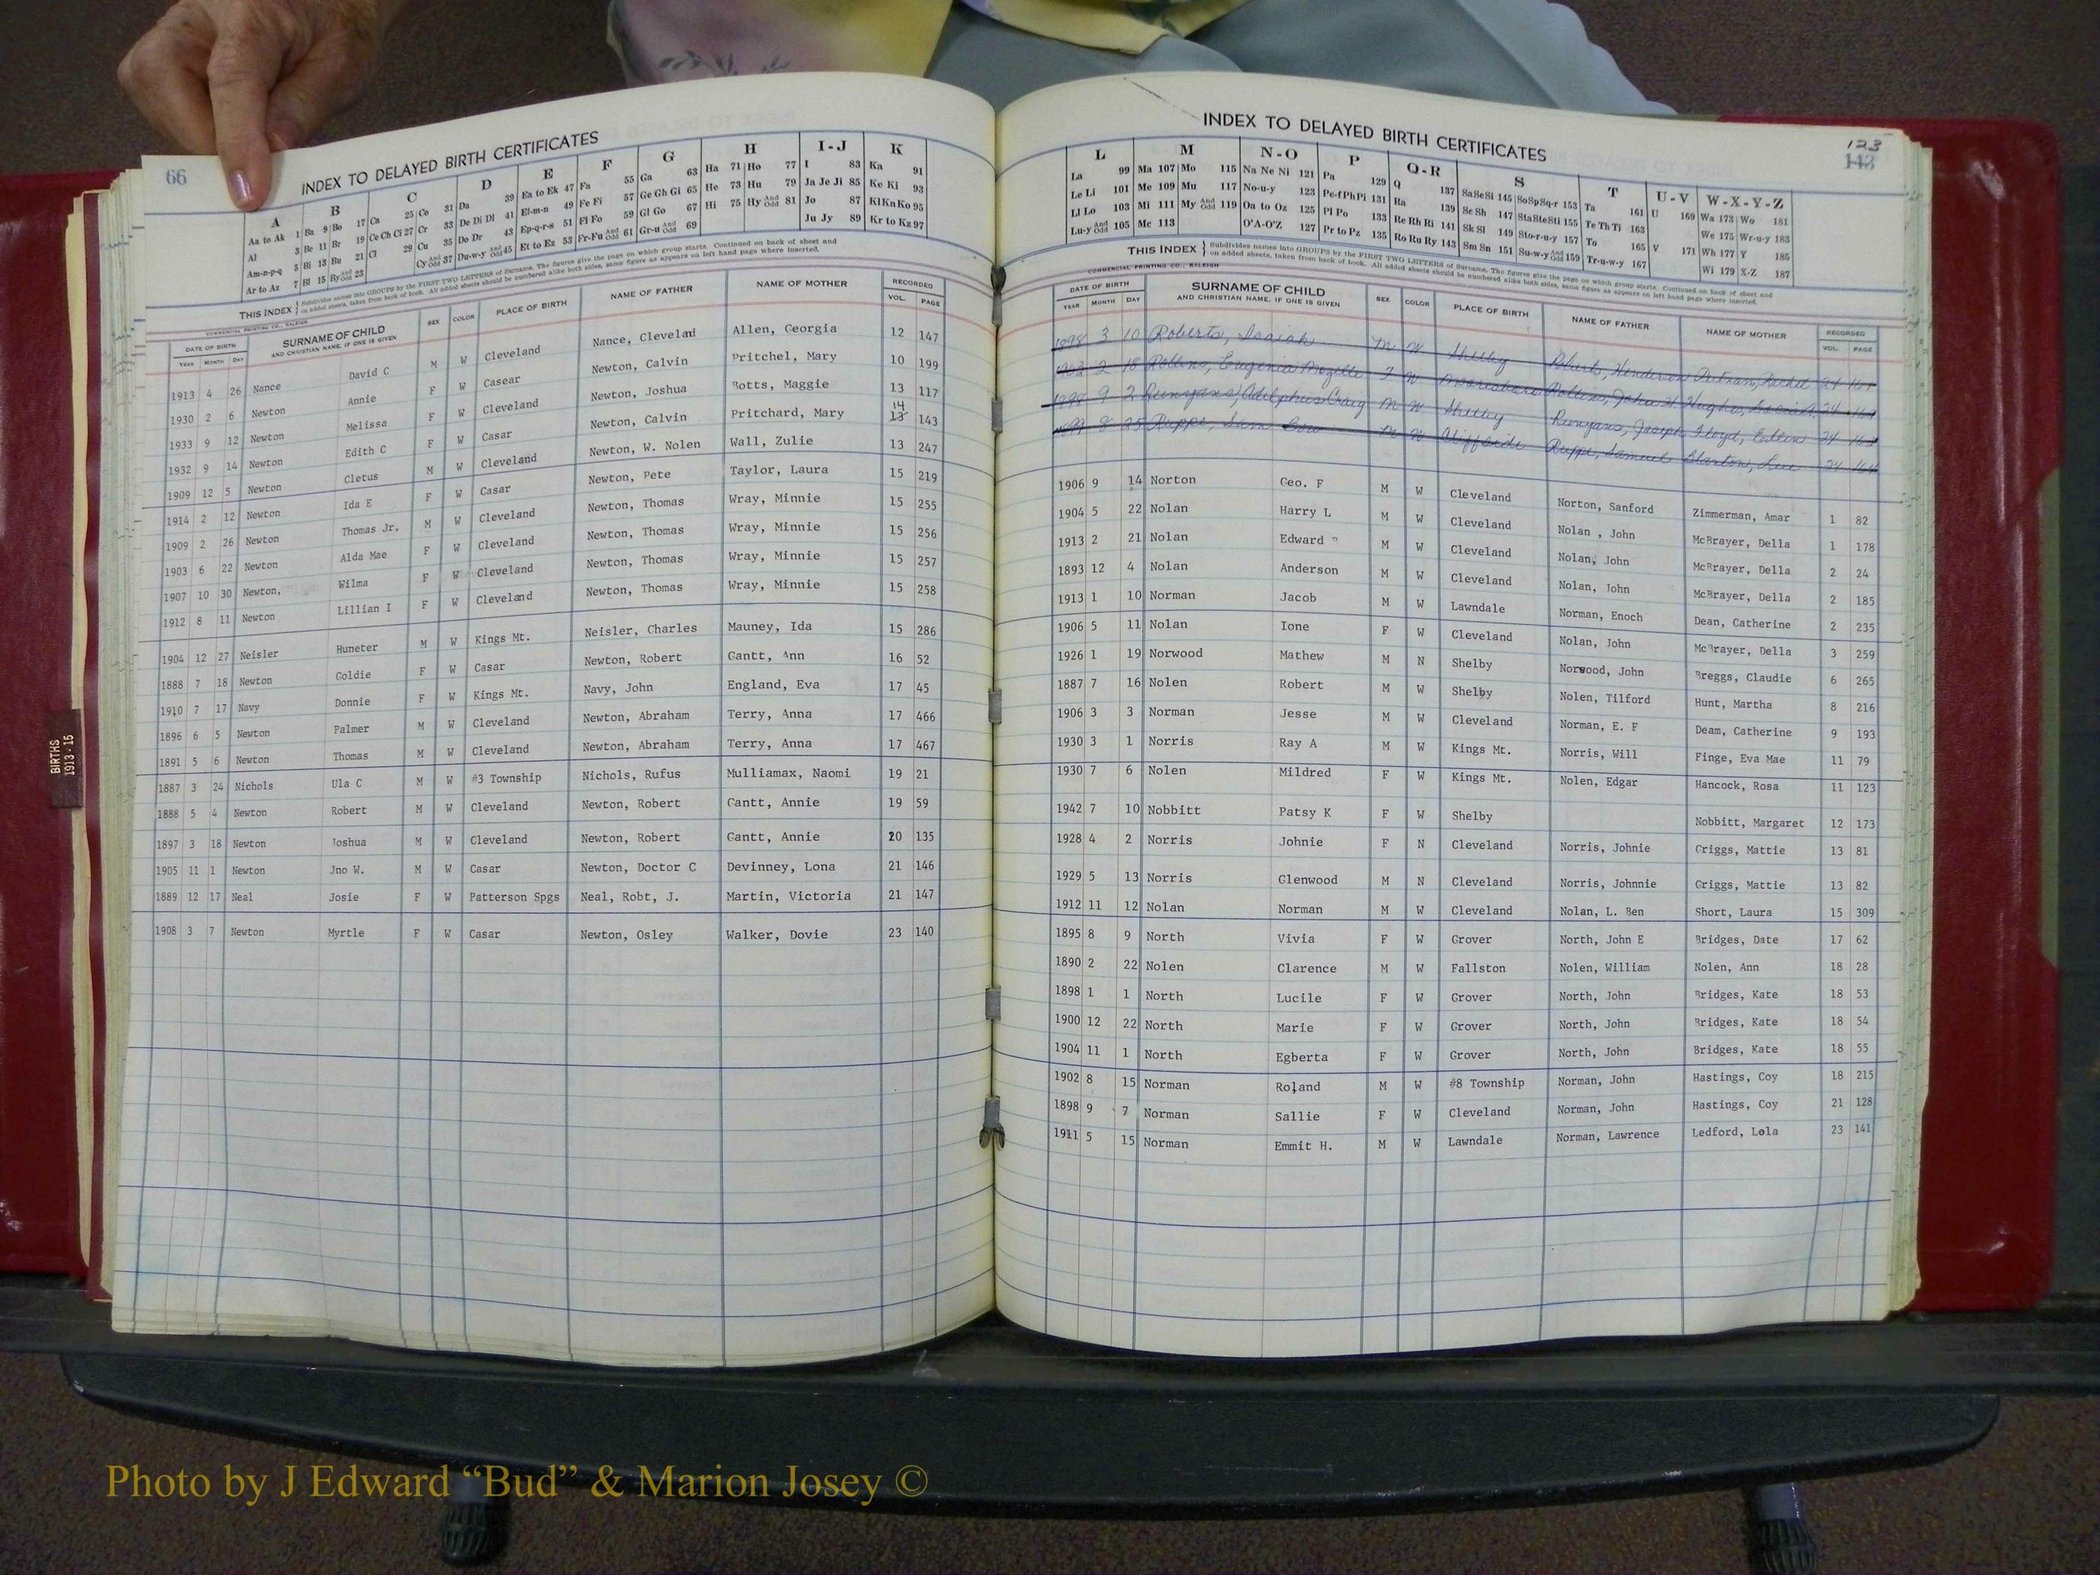 66
INDEX TO DELAYED BIRTH CERTIFICATES
A B C D E F G H I-J K
Aa to Ak 1 Ba 9 Bo 17 Ca 25 Co 31 Da 39 Ea to Ek 47 Fa 55 Ga 63 Ha 71 Ho 77 I 83 Ka 91
Al 3 Be 11 Br 19 Ce Ch Ci 27 Cr 33 De Di Dl 41 El-m-n 49 Fe Fi 57 Ge Gh Gi 65 He 73 Hu 79 Ja Je Ji 85 Ke Ki 93
Am-n-p-q 5 Bi 13 Bu 21 Cl 29 Cu 35 Do Dr 43 Ep-q-r-s 51 Fl Fo 59 Gl Go 67 Hi 75 Hy And Odd 81 Jo 87 Kl Kn Ko 95
Ar to Az 7 Bl 15 By And Odd 23 Cy And Odd 37 Du-w-y And Odd 45 Et to Ez 53 Fr-Fu And Odd 61 Gr-u And Odd 69 Ju Jy 89 Kr to Kz 97
THIS INDEX } Subdivides names into GROUPS by the FIRST TWO LETTERS of Surname. The figures give the page on which group starts. Continued on back of sheet and
on added sheets, taken from back of book. All added sheets should be numbered alike both sides, same figure as appears on left hand page where inserted.
COMMERCIAL PRINTING CO., RALEIGH
DATE OF BIRTH SURNAME OF CHILD SEX COLOR PLACE OF BIRTH NAME OF FATHER NAME OF MOTHER RECORDED
YEAR MONTH DAY AND CHRISTIAN NAME, IF ONE IS GIVEN VOL. PAGE
1913 4 26 Nance David C M W Cleveland Nance, Cleveland Allen, Georgia 12 147
1930 2 6 Newton Annie F W Casear Newton, Calvin Pritchel, Mary 10 199
1933 9 12 Newton Melissa F W Cleveland Newton, Joshua Botts, Maggie 13 117
1932 9 14 Newton Edith C F W Casar Newton, Calvin Pritchard, Mary 14 13 143
1909 12 5 Newton Cletus M W Cleveland Newton, W. Nolen Wall, Zulie 13 247
1914 2 12 Newton Ida E F W Casar Newton, Pete Taylor, Laura 15 219
1909 2 26 Newton Thomas Jr. M W Cleveland Newton, Thomas Wray, Minnie 15 255
1903 6 22 Newton Alda Mae F W Cleveland Newton, Thomas Wray, Minnie 15 256
1907 10 30 Newton, Wilma F W Cleveland Newton, Thomas Wray, Minnie 15 257
1912 8 11 Newton Lillian I F W Cleveland Newton, Thomas Wray, Minnie 15 258
1904 12 27 Neisler Huneter M W Kings Mt. Neisler, Charles Mauney, Ida 15 286
1888 7 18 Newton Coldie F W Casar Newton, Robert Gantt, Ann 16 52
1910 7 17 Navy Donnie F W Kings Mt. Navy, John England, Eva 17 45
1896 6 5 Newton Palmer M W Cleveland Newton, Abraham Terry, Anna 17 466
1891 5 6 Newton Thomas M W Cleveland Newton, Abraham Terry, Anna 17 467
1887 3 24 Nichols Ula C M W #3 Township Nichols, Rufus Mulliamax, Naomi 19 21
1888 5 4 Newton Robert M W Cleveland Newton, Robert Gantt, Annie 19 59
1897 3 18 Newton Joshua M W Cleveland Newton, Robert Gantt, Annie 20 135
1905 11 1 Newton Jno W. M W Casar Newton, Doctor C Devinney, Lona 21 146
1889 12 17 Neal Josie F W Patterson Spgs Neal, Robt, J. Martin, Victoria 21 147
1908 3 7 Newton Myrtle F W Casar Newton, Osley Walker, Dovie 23 140
BIRTHS 1913-15
123
143
INDEX TO DELAYED BIRTH CERTIFICATES
L M N-O P Q-R S T U-V W-X-Y-Z
La 99 Ma 107 Mo 115 Na Ne Ni 121 Pa 129 Q 137 Sa Se Si 145 So Sp Sq-r 153 Ta 161 U 169 Wa 173 Wo 181
Le Li 101 Me 109 Mu 117 No-u-y 123 Pe-f Ph Pi 131 Ra 139 Sc Sh 147 Sta Ste Sti 155 Te Th Ti 163 We 175 Wr-u-y 183
Ll Lo 103 Mi 111 My And Odd 119 Oa to Oz 125 Pl Po 133 Re Rh Ri 141 Sk Sl 149 Sto-r-u-y 157 To 165 V 171 Wh 177 Y 185
Lu-y And Odd 105 Mc 113 O'A-O'Z 127 Pr to Pz 135 Ro Ru Ry 143 Sm Sn 151 Su-w-y And Odd 159 Tr-u-w-y 167 Wi 179 X-Z 187
THIS INDEX } Subdivides names into GROUPS by the FIRST TWO LETTERS of Surname. The figures give the page on which group starts. Continued on back of sheet and
on added sheets, taken from back of book. All added sheets should be numbered alike both sides, same figure as appears on left hand page where inserted.
COMMERCIAL PRINTING CO., RALEIGH
DATE OF BIRTH SURNAME OF CHILD SEX COLOR PLACE OF BIRTH NAME OF FATHER NAME OF MOTHER RECORDED
YEAR MONTH DAY AND CHRISTIAN NAME, IF ONE IS GIVEN VOL. PAGE
1898 3 10 Roberts, Isaiah M W Shelby Roberts, Henderson Putnam, Rachel 24 161
2 18 Rollins, Eugenia Mozelle F W Mooresboro Rollins, John H. Hughes, 24
9 2 Runyans, Adelphus Craig M W Shelby Runyans, Joseph Floyd, Ellen 24
8 25 Ruppe, Sam M W Cliffside Ruppe, Samuel Blanton, Sue 24
1906 9 14 Norton Geo. F M W Cleveland Norton, Sanford Zimmerman, Amar 1 82
1904 5 22 Nolan Harry L M W Cleveland Nolan , John McBrayer, Della 1 178
1913 2 21 Nolan Edward M W Cleveland Nolan, John McBrayer, Della 2 24
1893 12 4 Nolan Anderson M W Cleveland Nolan, John McBrayer, Della 2 185
1913 1 10 Norman Jacob M W Lawndale Norman, Enoch Dean, Catherine 2 235
1906 5 11 Nolan Ione F W Cleveland Nolan, John McBrayer, Della 3 259
1926 1 19 Norwood Mathew M N Shelby Norwood, John Breggs, Claudie 6 265
1887 7 16 Nolen Robert M W Shelby Nolen, Tilford Hunt, Martha 8 216
1906 3 3 Norman Jesse M W Cleveland Norman, E. F Deam, Catherine 9 193
1930 3 1 Norris Ray A M W Kings Mt. Norris, Will Finge, Eva Mae 11 79
1930 7 6 Nolen Mildred F W Kings Mt. Nolen, Edgar Hancock, Rosa 11 123
1942 7 10 Nobbitt Patsy K F W Shelby Nobbitt, Margaret 12 173
1928 4 2 Norris Johnie F N Cleveland Norris, Johnie Griggs, Mattie 13 81
1929 5 13 Norris Glenwood M N Cleveland Norris, Johnnie Griggs, Mattie 13 82
1912 11 12 Nolan Norman M W Cleveland Nolan, L. Ben Short, Laura 15 309
1895 8 9 North Vivia F W Grover North, John E Bridges, Date 17 62
1890 2 22 Nolen Clarence M W Fallston Nolen, William Nolen, Ann 18 28
1898 1 1 North Lucile F W Grover North, John Bridges, Kate 18 53
1900 12 22 North Marie F W Grover North, John Bridges, Kate 18 54
1904 11 1 North Egberta F W Grover North, John Bridges, Kate 18 55
1902 8 15 Norman Roland M W #8 Township Norman, John Hastings, Coy 18 215
1898 9 7 Norman Sallie F W Cleveland Norman, John Hastings, Coy 21 128
1911 5 15 Norman Emmit H. M W Lawndale Norman, Lawrence Ledford, Lola 23 141
Photo by J Edward “Bud” & Marion Josey ©